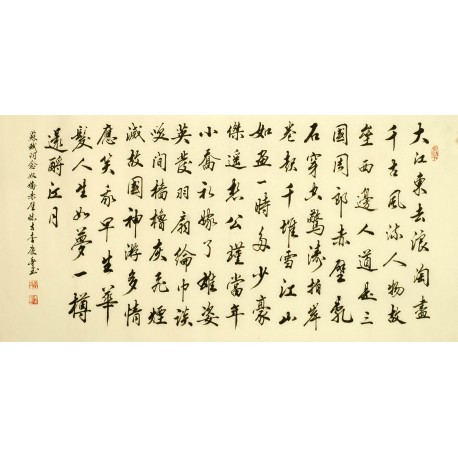 大江東去浪淘盡
千古風流人物故
壘西邊人道是三
國周郎赤壁亂
石穿空驚濤拍岸
卷起千堆雪江山
如畫一時多少豪
傑遙想公瑾當年
小喬初嫁了雄姿
英發羽扇綸巾談
笑間檣櫓灰飛煙
滅故國神游多情
應笑我早生華
髮人生如夢一樽
還酹江月
蘇軾詞念奴嬌赤壁懷古李慶